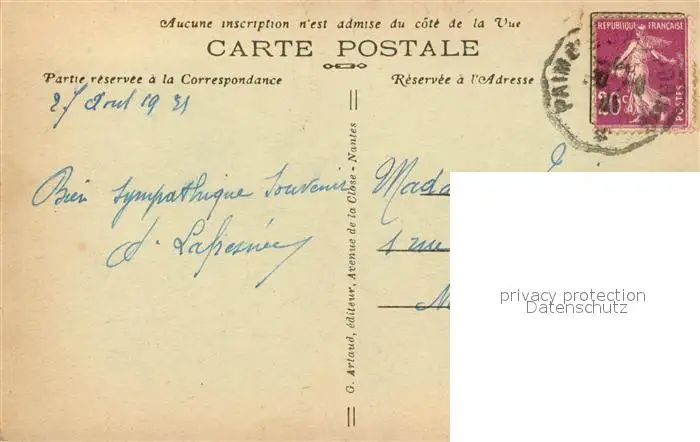 Aucune inscription n'est admise du côté de la Vue
CARTE POSTALE
Partie réservée à la Correspondance
Réservée à l'Adresse
27 Août 1931
Bien sympathique Souvenir
Lafresnée
G. Artaud, éditeur, Avenue de la Close - Nantes
REPUBLIQUE FRANÇAISE
20c
POSTES
PAIMB
Mada
1 rue
privacy protection
Datenschutz